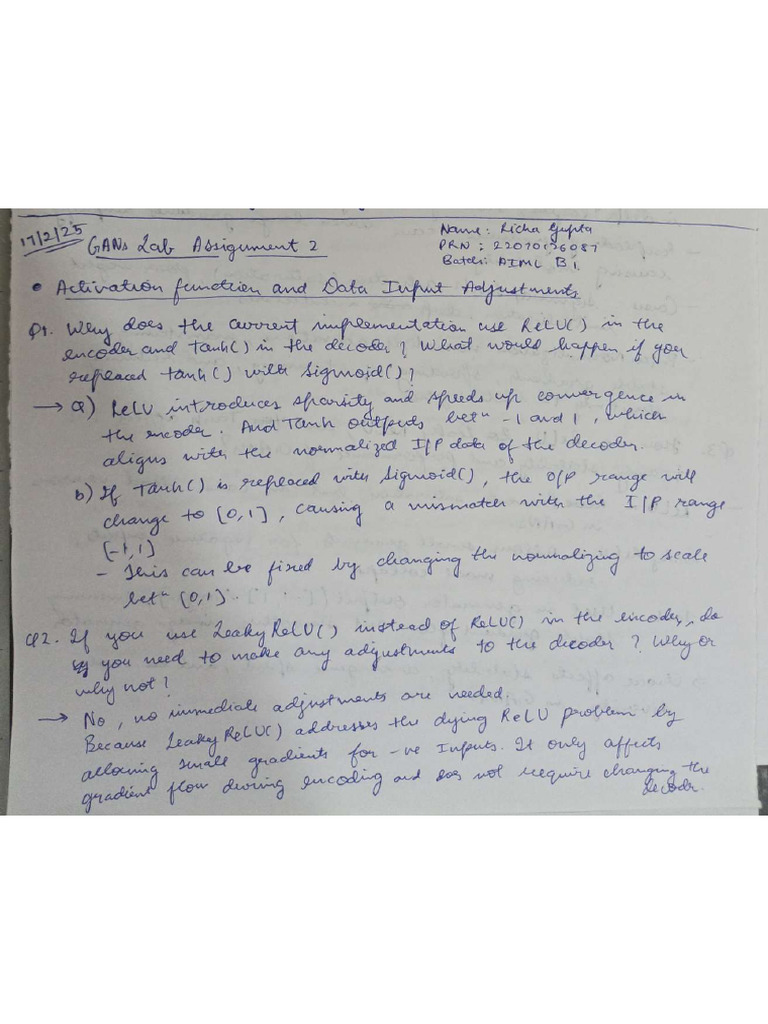 17/2/25
GANs Lab Assignment 2
Name: Richa Gupta
PRN: 22070126087
Batch: AIML B1
• Activation function and Data Input Adjustments
Q1. Why does the current implementation use ReLU() in the
encoder and Tanh() in the decoder? What would happen if you
replaced Tanh() with Sigmoid()?
→ a) ReLU introduces sparsity and speeds up convergence in
the encoder. And Tanh outputs betⁿ -1 and 1, which
aligns with the normalized I/P data of the decoder.
b) If Tanh() is replaced with Sigmoid(), the O/P range will
change to [0,1], causing a mismatch with the I/P range
[-1,1]
- This can be fixed by changing the normalizing to scale
betⁿ [0,1].
Q2. If you use LeakyReLU() instead of ReLU() in the encoder, do
you need to make any adjustments to the decoder? Why or
why not?
→ No, no immediate adjustments are needed.
Because LeakyReLU() addresses the dying ReLU problem by
allowing small gradients for -ve Inputs. It only affects
gradient flow during encoding and does not require changing the
decoder.